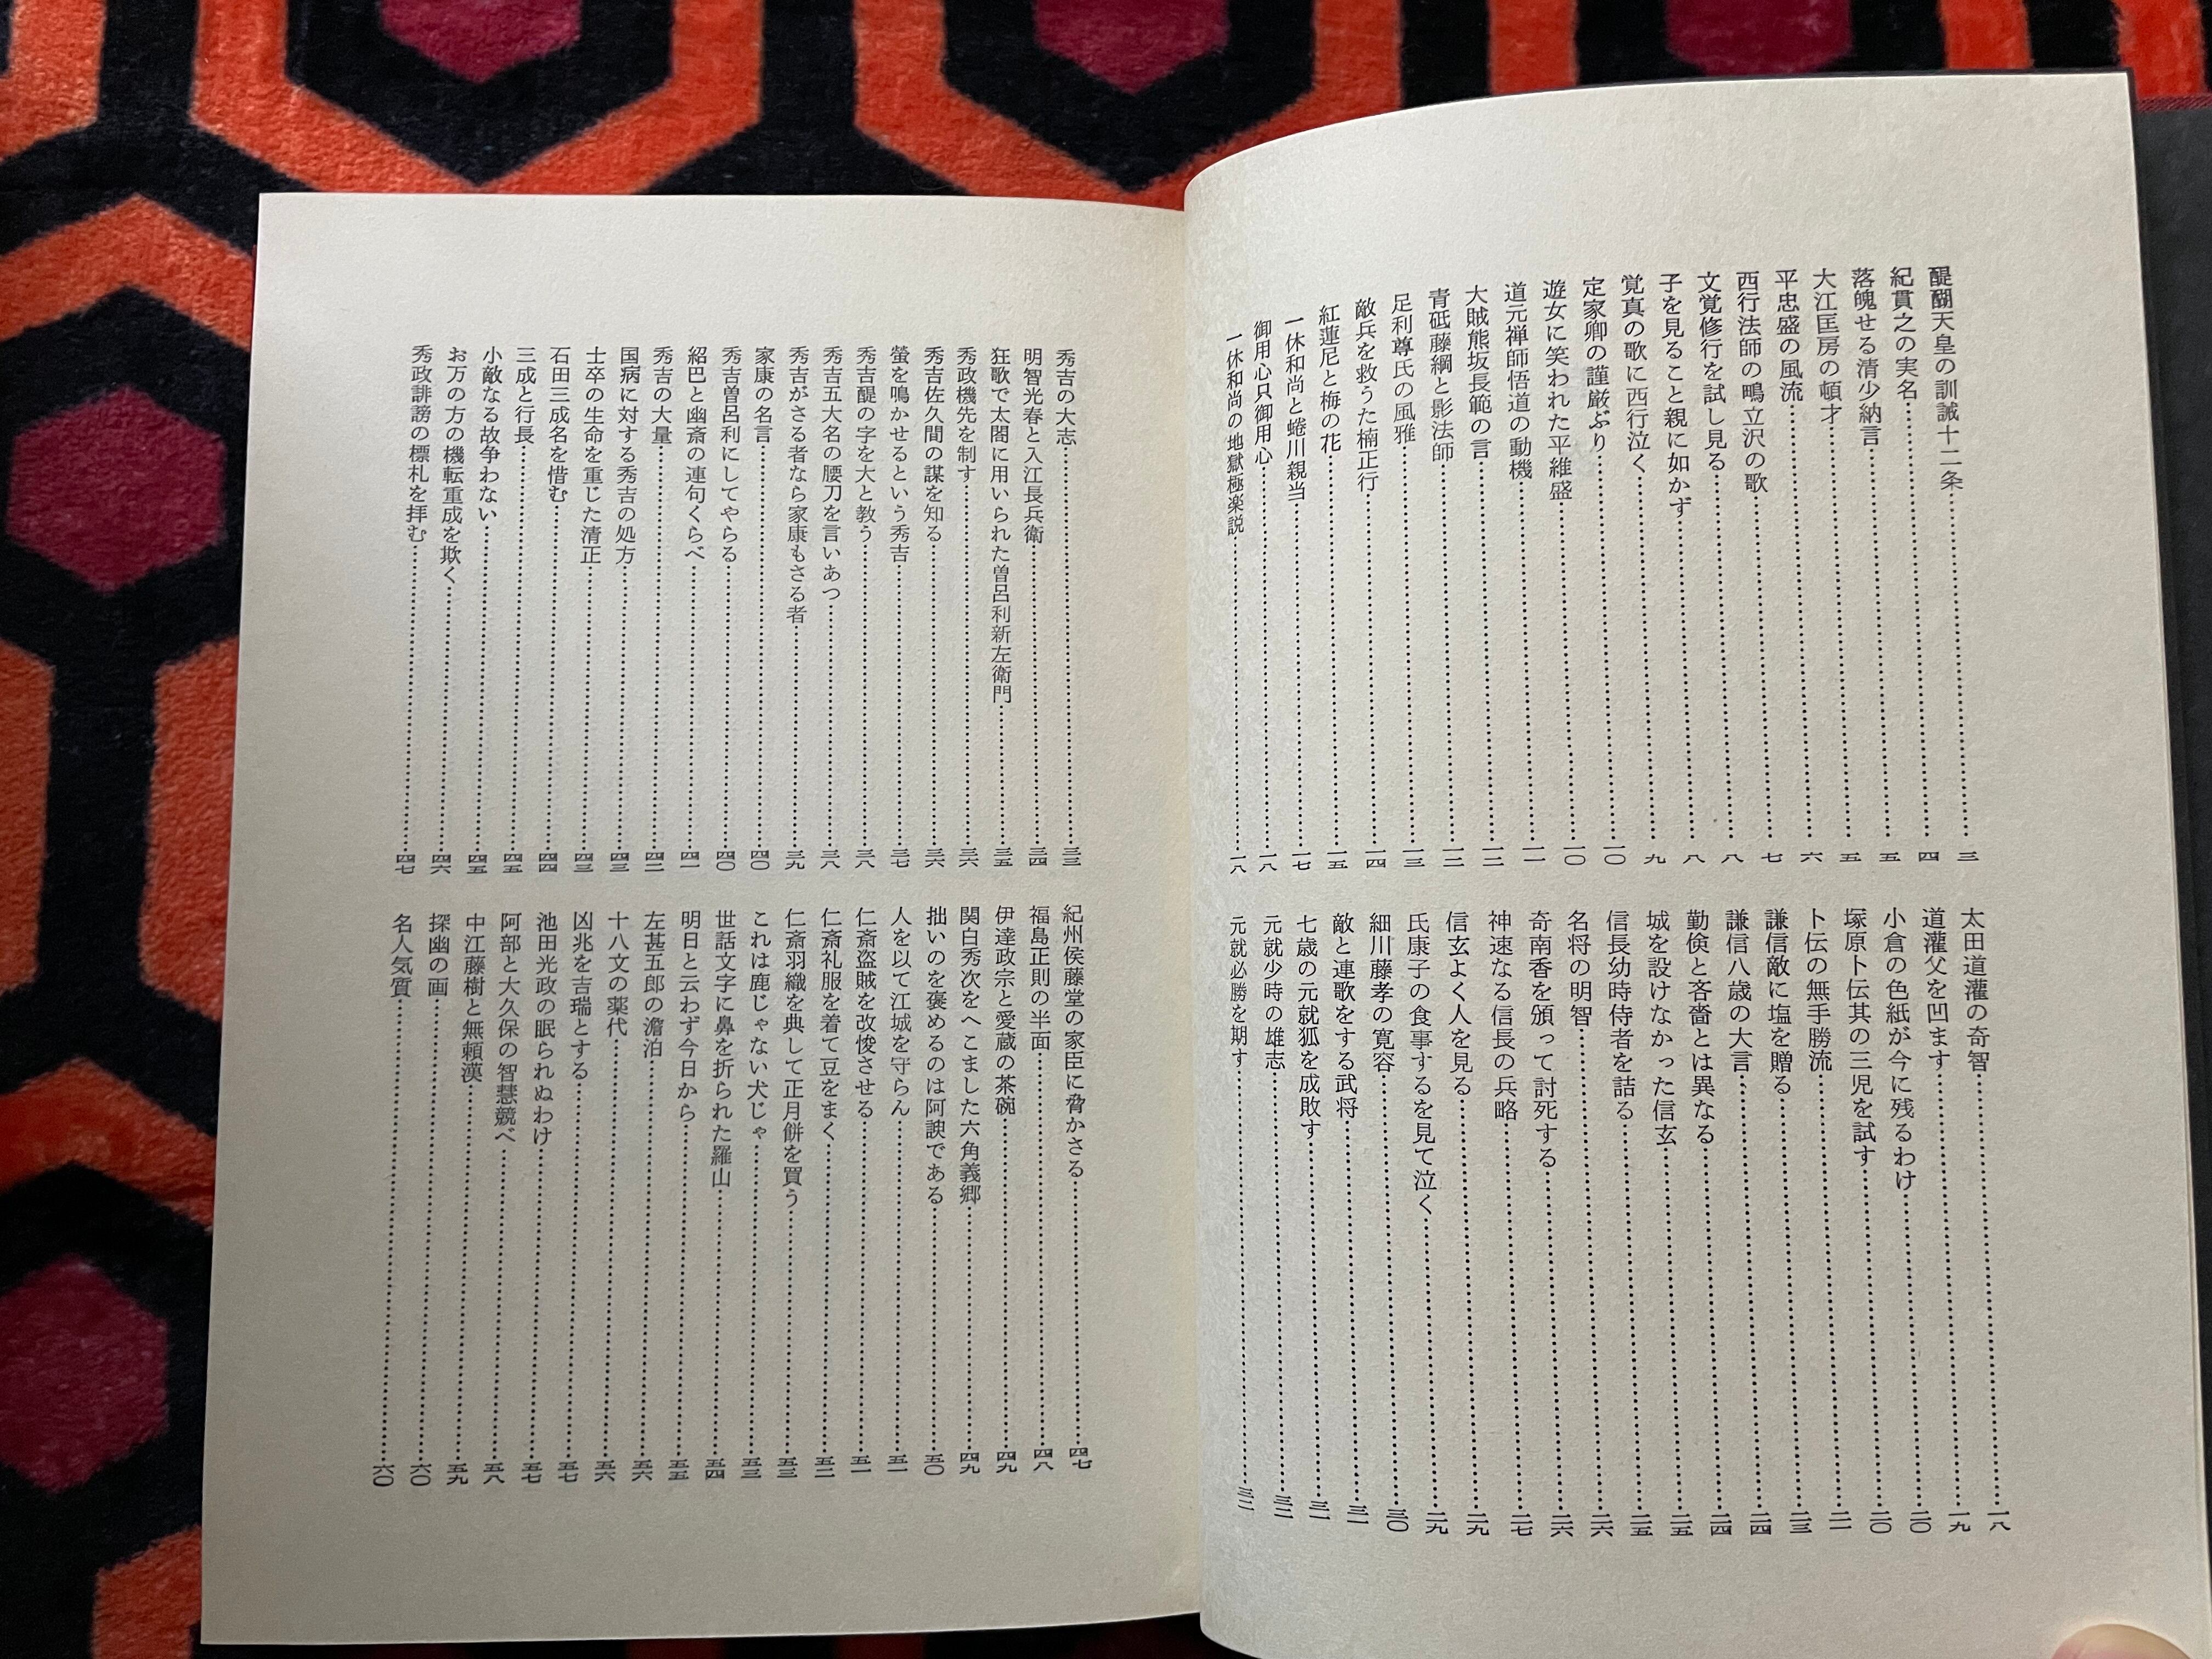 醍醐天皇の訓誡十二条……三
紀貫之の実名……四
落魄せる清少納言……五
大江匡房の頓才……五
平忠盛の風流……六
西行法師の鴫立沢の歌……七
文覚修行を試し見る……八
子を見ること親に如かず……八
覚真の歌に西行泣く……九
定家卿の謹厳ぶり……一〇
遊女に笑われた平維盛……一〇
道元禅師悟道の動機……一一
大賊熊坂長範の言……一二
青砥藤綱と影法師……一二
足利尊氏の風雅……一三
敵兵を救うた楠正行……一四
紅蓮尼と梅の花……一五
一休和尚と蜷川親当……一七
御用心只御用心……一八
一休和尚の地獄極楽説……一八
太田道灌の奇智……一八
道灌父を凹ます……一九
小倉の色紙が今に残るわけ……二〇
塚原卜伝其の三児を試す……二〇
卜伝の無手勝流……二一
謙信敵に塩を贈る……二三
謙信八歳の大言……二四
勤倹と吝嗇とは異なる……二四
城を設けなかった信玄……二五
信長幼時侍者を詰る……二五
名将の明智……二六
奇南香を頒って討死する……二六
神速なる信長の兵略……二七
信玄よく人を見る……二九
氏康子の食事するを見て泣く……二九
細川藤孝の寛容……三〇
敵と連歌をする武将……三一
七歳の元就狐を成敗す……三一
元就少時の雄志……三二
元就必勝を期す……三二
秀吉の大志……三三
明智光春と入江長兵衛……三四
狂歌で太閤に用いられた曽呂利新左衛門……三五
秀政機先を制す……三六
秀吉佐久間の謀を知る……三六
螢を鳴かせるという秀吉……三七
秀吉醍の字を大と教う……三八
秀吉五大名の腰刀を言いあつ……三八
秀吉がさる者なら家康もさる者……三九
家康の名言……四〇
秀吉曽呂利にしてやらる……四〇
紹巴と幽斎の連句くらべ……四一
秀吉の大量……四二
国病に対する秀吉の処方……四三
士卒の生命を重じた清正……四三
石田三成名を惜む……四四
三成と行長……四五
小敵なる故争わない……四五
お万の方の機転重成を欺く……四六
秀政誹謗の標札を拝む……四七
紀州侯藤堂の家臣に脅かさる……四七
福島正則の半面……四八
伊達政宗と愛蔵の茶碗……四九
関白秀次をへこました六角義郷……四九
拙いのを褒めるのは阿諛である……五〇
人を以て江城を守らん……五一
仁斎盗賊を改悛させる……五一
仁斎礼服を着て豆をまく……五二
仁斎羽織を典して正月餅を買う……五三
これは鹿じゃない犬じゃ……五三
世話文字に鼻を折られた羅山……五四
明日と云わず今日から……五五
左甚五郎の澹泊……五六
十八文の薬代……五六
凶兆を吉瑞とする……五七
池田光政の眠られぬわけ……五七
阿部と大久保の智慧競べ……五八
中江藤樹と無頼漢……五九
探幽の画……六〇
名人気質……六〇